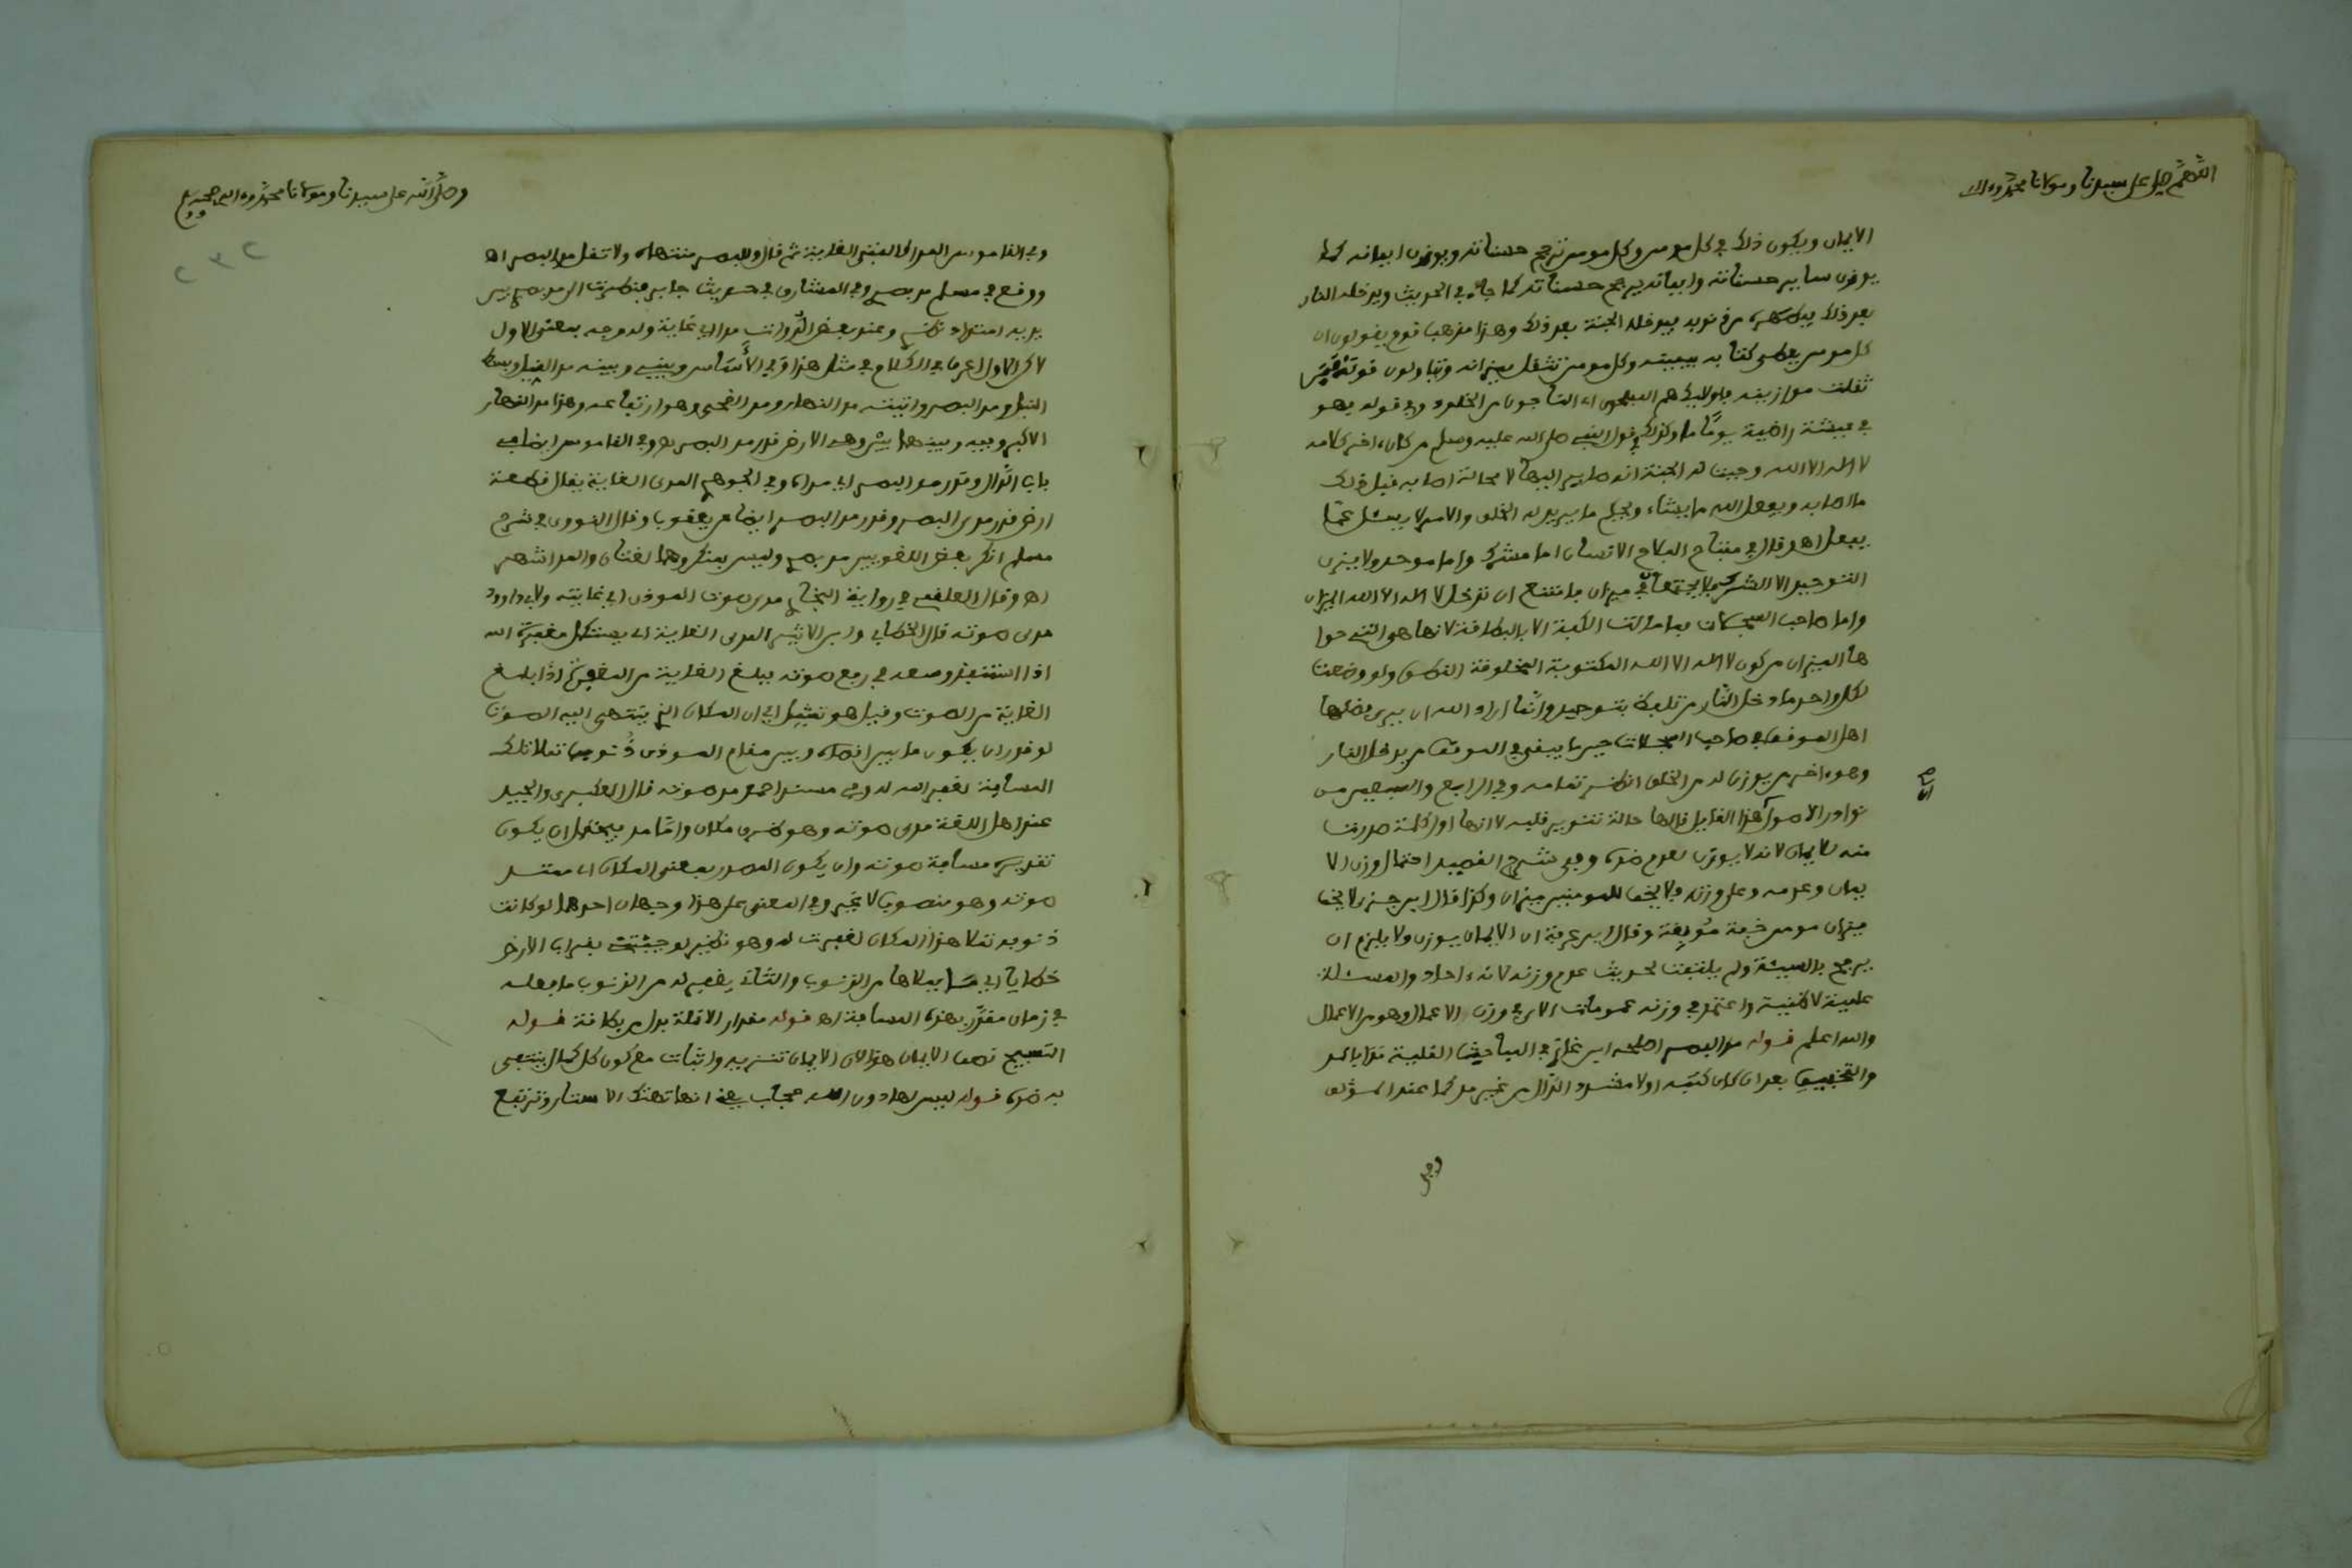 اللهم صل على سيدنا ومولانا محمد وءاله
الايمان ويكون ذلك في كل مومن وكل مومن ترجح حسناته ويوزن ايمانه كما
يوزن ساير حسناته وايمانه يرجح حسناته كما جاء في الحديث ويدخله النار
بعد ذلك يطهره من ذنوبه ويدخله الجنة بعد ذلك وهذا مذهب قوم يقولون ان
كل مومن يعطى كتابه بيمينه وكل مومن تثقل ميزانه ويتاولون قوله فمن
ثقلت موازينه فاولئك هم المفلحون اي الناجون من الخلود وفي قوله فهو
في عيشة راضية يوما ما وكذلك في قول النبي صلى الله عليه وسلم من كان ءاخر كلامه
لا اله الا الله وجبت له الجنة انه صاير اليها لا محالة اصابه قبل ذلك
ما اصابه ويفعل الله ما يشاء ويحكم ما يريد له الخلق والامر لا يسئل عما
يفعل اهـ وقال في مفتاح الفلاح الانسان اما مشرك واما موحد ولا يزن
التوحيد الا الشرك ولا يجتمعان في ميزان فامتنع ان تدخل لا اله الا الله الميزان
واما صاحب السجلات فما مالت الكفة الا بالبطاقة لانها هي التي حوا
ها الميزان من كون لا اله الا الله المكتوبة المخلوقة النطق ولو وضعت
لكل واحد ما دخل النار من تلفظ بتوحيد وانما اراد الله ان يرى فضلها
اهل الموقف في صاحب السجلات حين ما يبقى في الموقف من يدخل النار
وهو ءاخر من يوزن له من الخلق انظر تمامه وفي الرابع والسبعين من
نوادر الاصول هذا القايل قالها حالة تنوير قلبه لانها اول كلمة صدرت
اصل
منه للايمان لانه لا يوزن لعدم ضده وفي شرح القصيد احتمال وزن الا
يمان وعدمه وعلى وزنه فلا يخف للمومنين ميزان وكذا قال ابن جزى لا يخف
ميزان مومن خفة موبقة وقال ابن عرفة ان الايمان يوزن ولا يلزم ان
يرجح بالسيئة ولم يلتفت لحديث عدم وزنه لانه ءاحاد والمسئلة
علمية لا ظنية واعتمد في وزنه عمومات الاي في وزن الاعمال وهو من الاعمال
والله اعلم قوله مد البصر اصلحه ابن غازي في المباحث القلبية مدا بالمد
والتخفيف بعد ان كان كتبه اولا مشدد الدال من غير مد كما عند المؤلف
وفي
وصلى الله على سيدنا ومولانا محمد وءاله وصحبه وسلم
٢٣٢
وفي القاموس المدى كالفتى الغاية ثم قال وللبصر منتهاه ولا تقل مد البصر اهـ
ووقع في مسلم مد بصري وفي المشارق في حديث جابر فنظرت الى مد بصري
يريد امتداد نظري وعند بعض الرواة مدى اي غاية وله وجه بمعنى الاول
لاكن الاول اعرف في الكلام في مثل هذا وفي الأساس وبيني وبينه مد
النيل ومد البصر واتيته مد النهار ومد الضحى وهو ارتفاعه وهذا مد النهار
الاكبر وبيني وبينها بير وهي الارض قدر مد البصر اهـ وفي القاموس ايضا في
باب الدال وقدر مد البصر اي مداه وفي الجوهري المدى الغاية يقال قطعة
ارض قدر مدى البصر وقدر مد البصر ايضا عن يعقوب وقال النووي في شرح
مسلم انكر بعض اللغويين مد بصري وليس بمنكر وهما لغتان والمد اشهر
اهـ وقال العلقمي في رواية البخاري مدى صوت الموذن اي غايته ولابي داوود
مدى صوته قال الخطابي وابن الاثير المدى الغاية اي يستكمل مغفرة الله
اذا استنفد وسعه في رفع صوته فبلغ الغاية من المغفرة اذا بلغ
الغاية من الصوت وقيل هو تمثيل اي ان المكان الذي ينتهي اليه الصوت
لو قدر ان يكون ما بين اقصاه وبين مقام الموذن ذنوب تملا تلك
المسافة لغفر الله له وفي مسند احمد مد صوته قال العكبري والجيد
عند اهل اللغة مدى صوته وهو ظرف مكان واما مد فيحتمل ان يكون
تقديره مسافة صوته وان يكون المصدر بمعنى المكان اي ممتد
صوته وهو منصوب لا غير وفي المعنى على هذا وجهان احدهما لو كانت
ذنوبه تملا هذا المكان لغفرت له وهو نظير لو جئتني بقراب الارض
خطايا اي بملاها من الذنوب والثاني يغفر له من الذنوب ما فعله
في زمان مقدر بهذه المسافة اهـ قوله مقدار الانملة بدل من بطاقة قوله
التسبيح نصف الايمان هذا لان الايمان تنزيه واثبات مع كون كل كمال ينتفي
به ضده قوله ليس لها دون الله حجاب يعني انها تهتك الاستار وترتفع